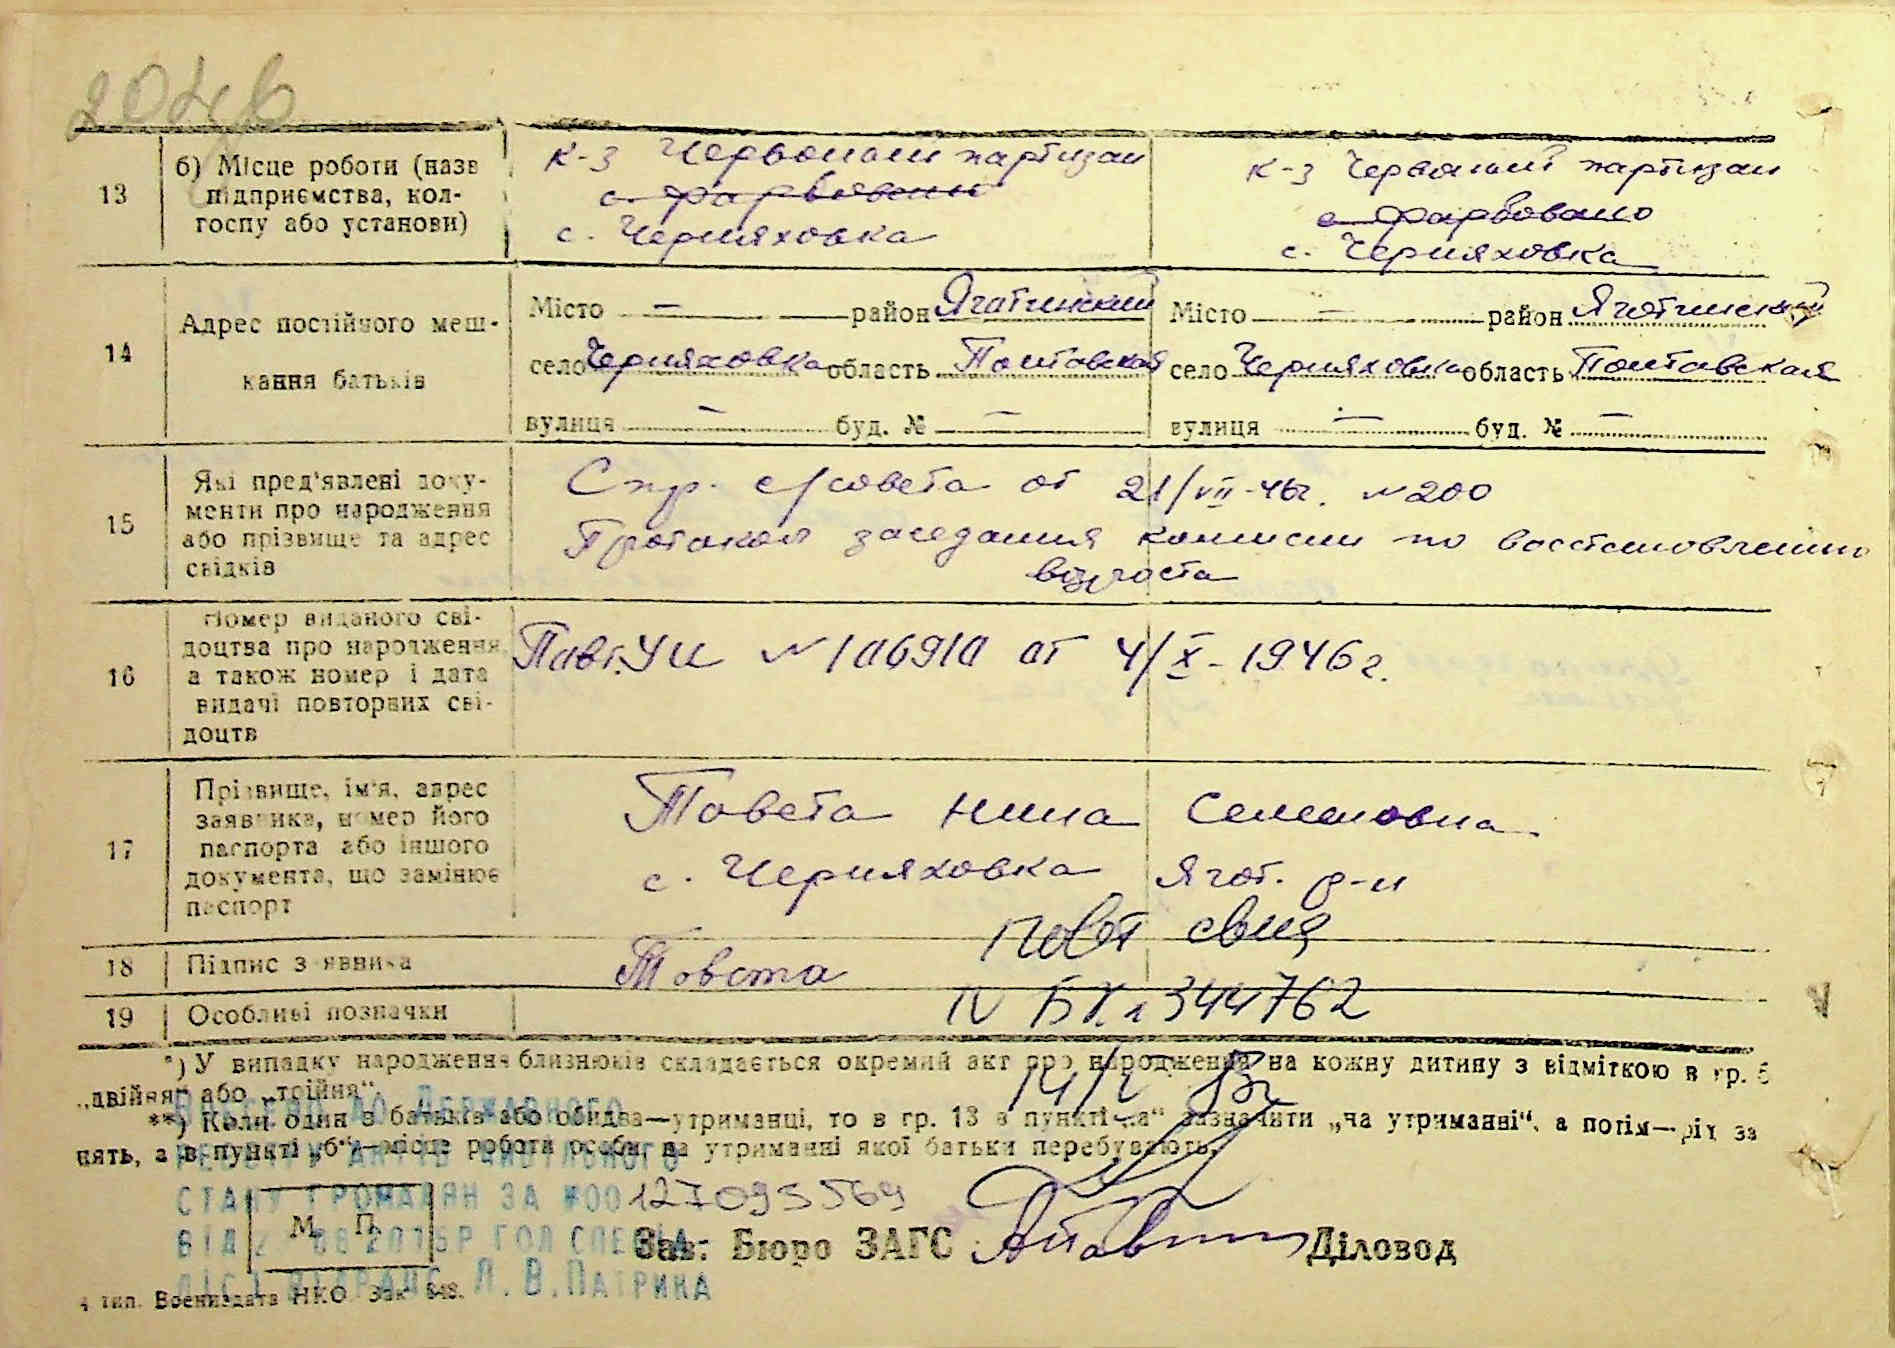 2046
13
б) Місце роботи (назв
підприємства, кол-
госпу або установи)
к-з Червоный партизан
с. Фарбовано
с. Черняховка
к-з Червоный партизан
с. Фарбовано
с. Черняховка
14
Адрес постійного меш-
кання батьків
Місто — район Яготинский
село Черняховка область Полтавская
вулиця — буд. № —
Місто — район Яготинский
село Черняховка область Полтавская
вулиця — буд. № —
15
Які пред'явлені доку-
менти про народження
або прізвище та адрес
свідків
Спр. с/совета от 21/VII-46г. №200
Протокол заседания комиссии по восстановлению
возраста
16
Номер виданого сві-
доцтва про народження,
а також номер і дата
видачі повторних сві-
доцтв
от 4/X-1946г.
17
Прізвище, ім'я, адрес
заявника, номер його
паспорта або іншого
документа, що замінює
паспорт
Товста Нина Семеновна
с. Черняховка Ягот. р-н
18
Підпис заявника
Товста
повт
19
Особливі позначки
IV БК 344762
*) У випадку народження близнюків складається окремий акт про народження на кожну дитину з відміткою в гр. 5
„двійня" або „трійня".
**) Коли один з батьків або обидва—утриманці, то в гр. 13 в пункті „а" зазначити „на утриманні", а потім—рід за
нять, а в пункті „б"—місце роботи особи, на утриманні якої батьки перебувають.
Державного
реєстру актів цивільного
стану громадян за №00127093569
від 2015р гол спеціа-
ліст Л. В. Патрика
М. П.
Зав. Бюро ЗАГС
Діловод
4 тип. Воениздата НКО Зак 848.